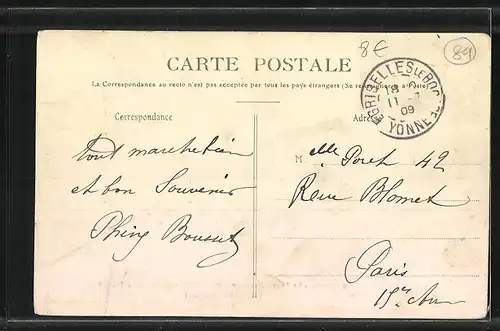 8€
89
CARTE POSTALE
EGRISELLES LE BOCAGE
18
11 -7
09
YONNE
La Correspondance au recto n'est pas acceptée par tous les pays étrangers (Se renseigner à la Poste)
Correspondance
Adresse
Tout marche bien
et bon Souvenir
Bousset
M elle Poret 42
Rue Blomet
Paris
15me